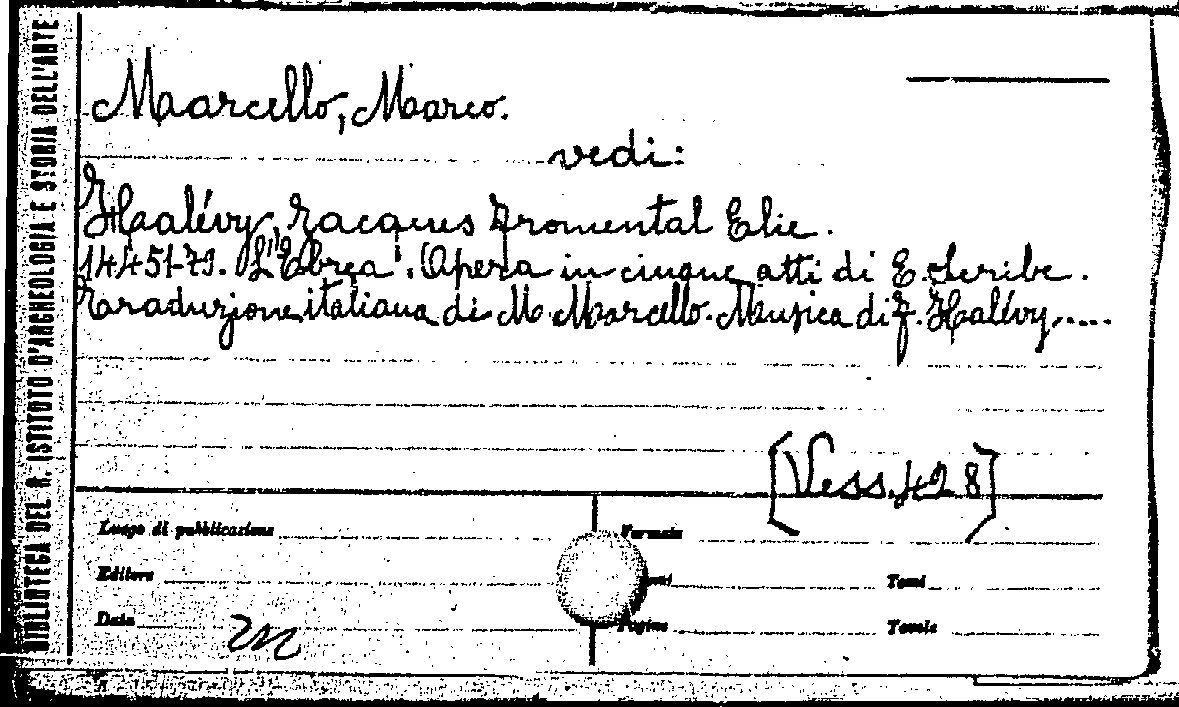 BIBLIOTECA DEL R. ISTITUTO D'ARCHEOLOGIA E STORIA DELL'ARTE
Marcello, Marco.
vedi:
Halévy, Jacques Fromental Elie.
144517-9. "L'Ebrea". Opera in cinque atti di E. Scribe.
Traduzione italiana di M. Marcello. Musica di F. Halévy.....
[Vess. 428]
Luogo di pubblicazione
Formato
Editore
Tomi
Data
Pagine
Tavole